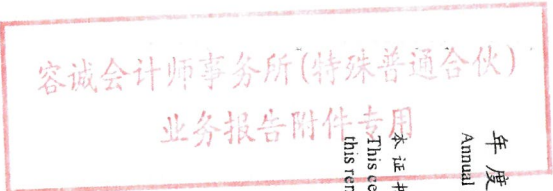 容诚会计师事务所(特殊普通合伙)
业务报告附件专用
年度
Annual
本证书
This ce
this rer